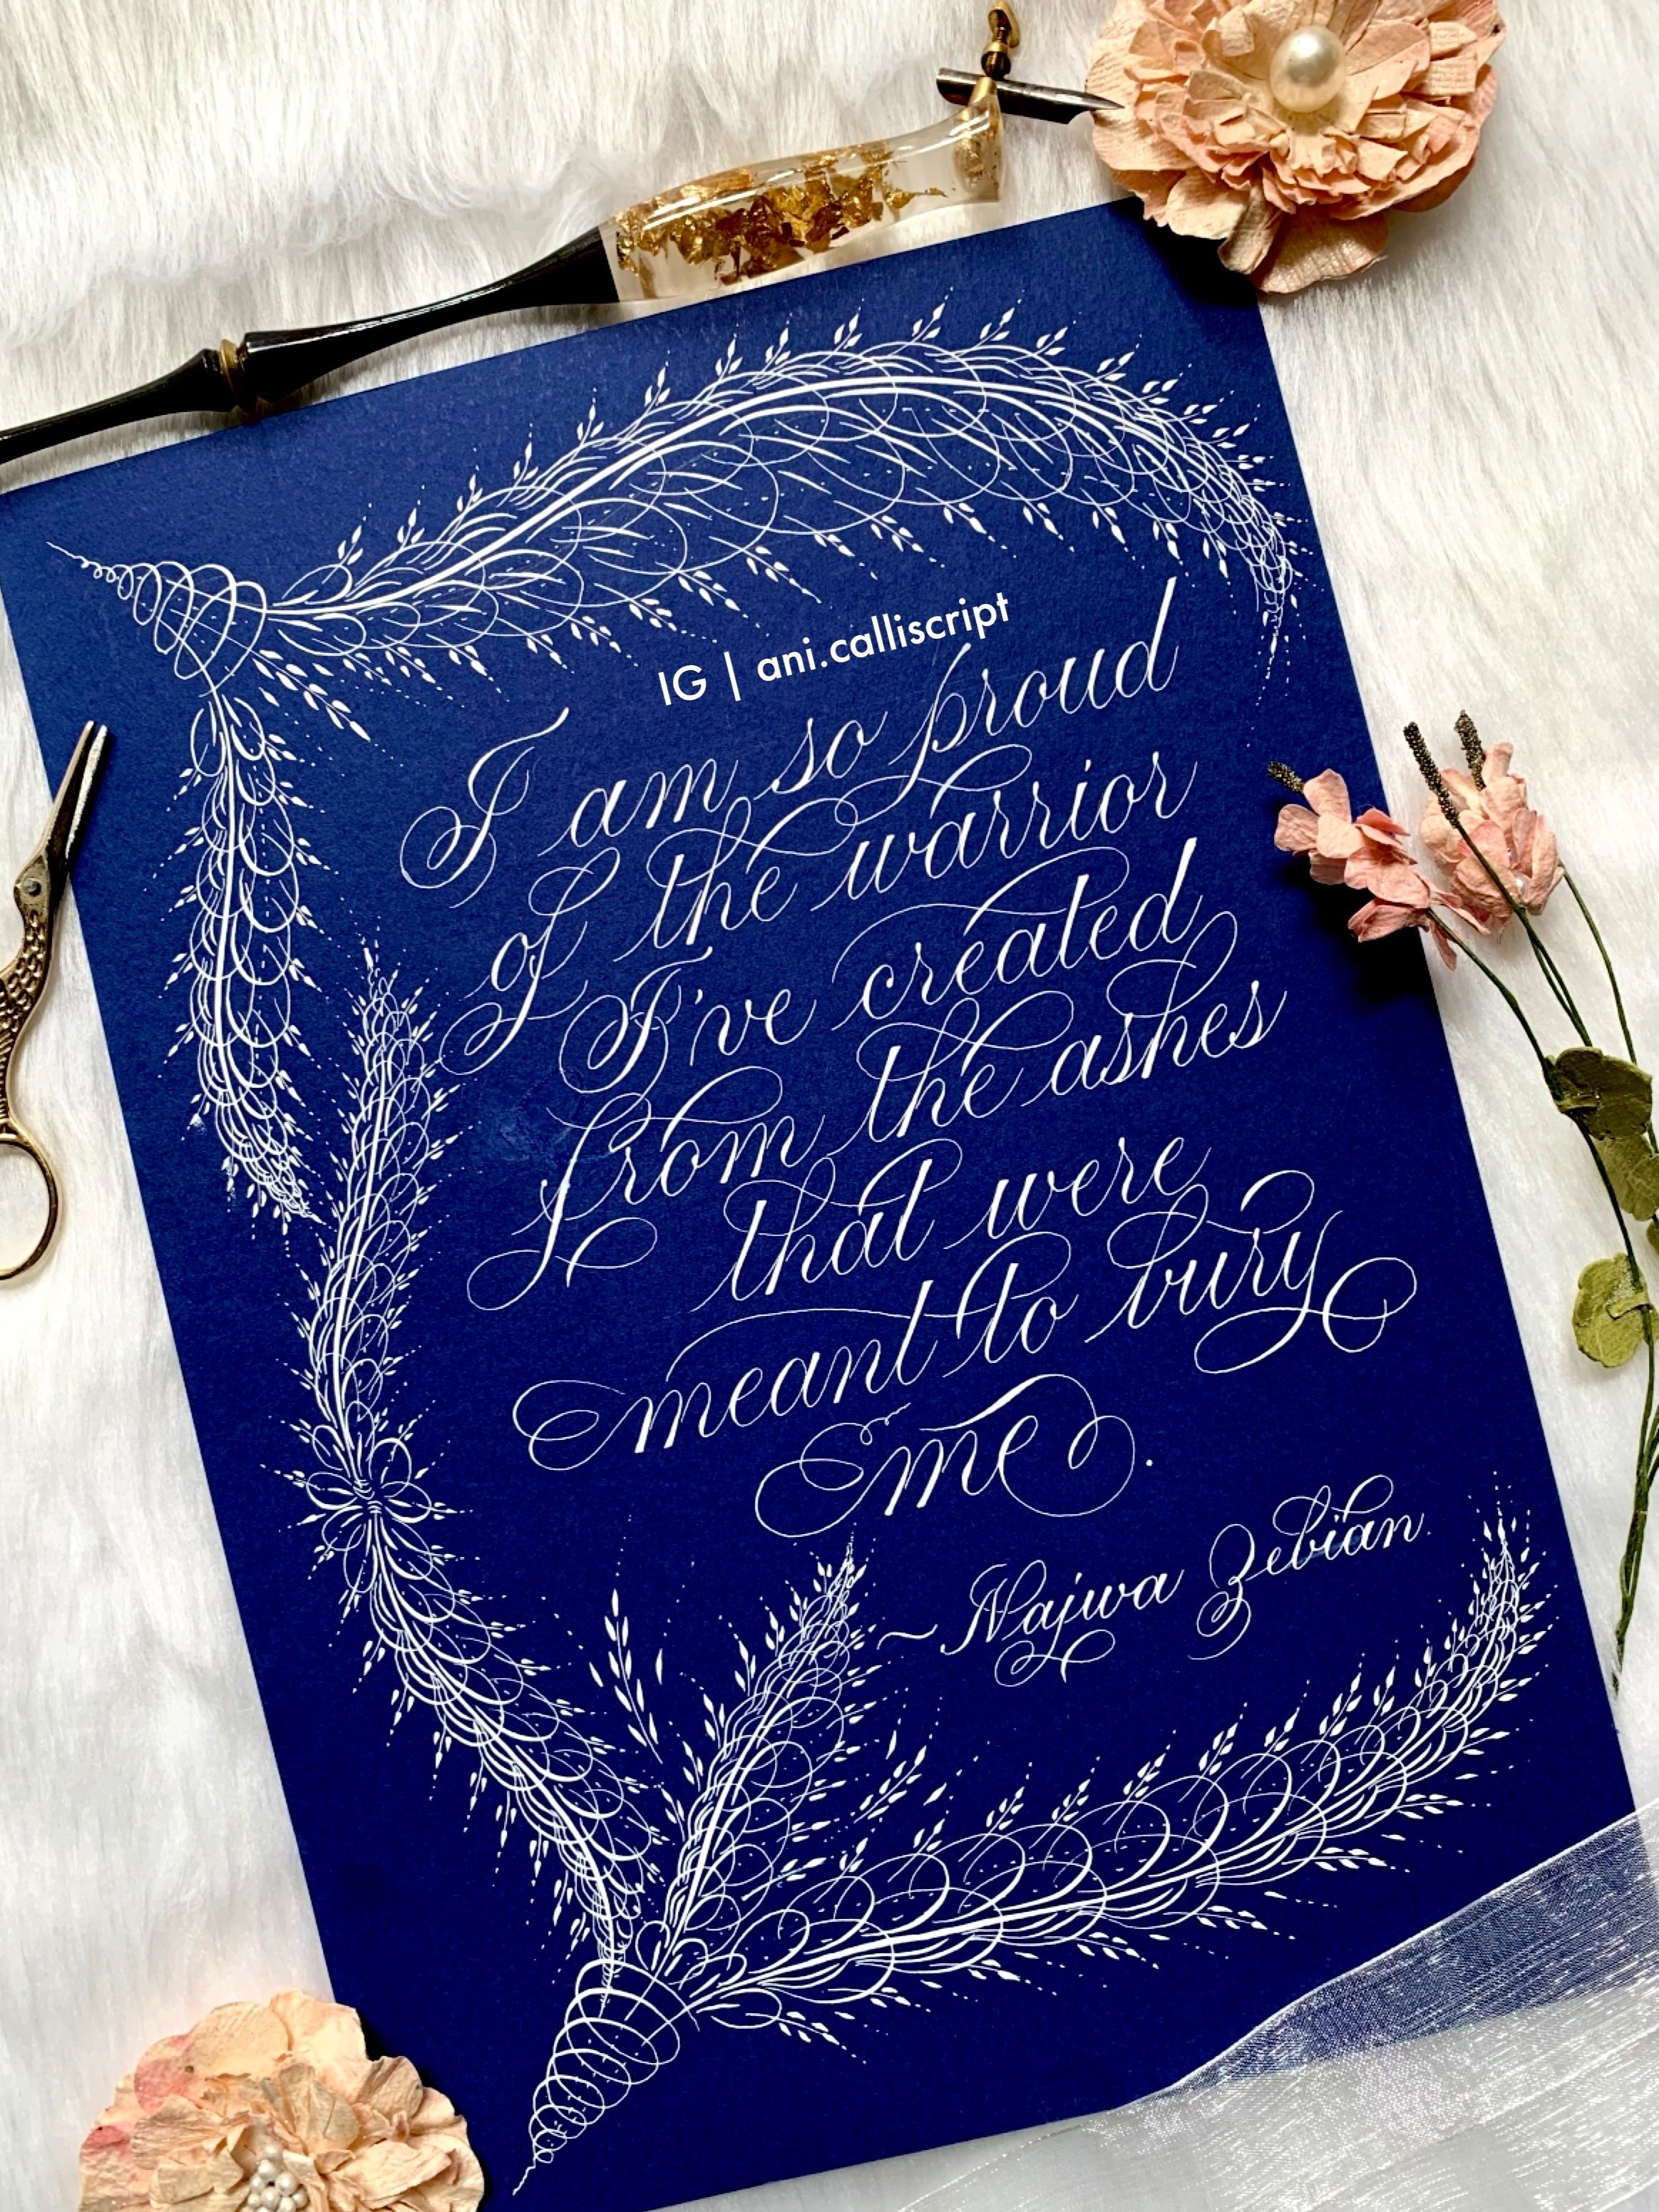 IG | ani.calliscript
I am so proud
of the warrior
I've created
from the ashes
that were
meant to bury
me.
~ Najwa Zebian